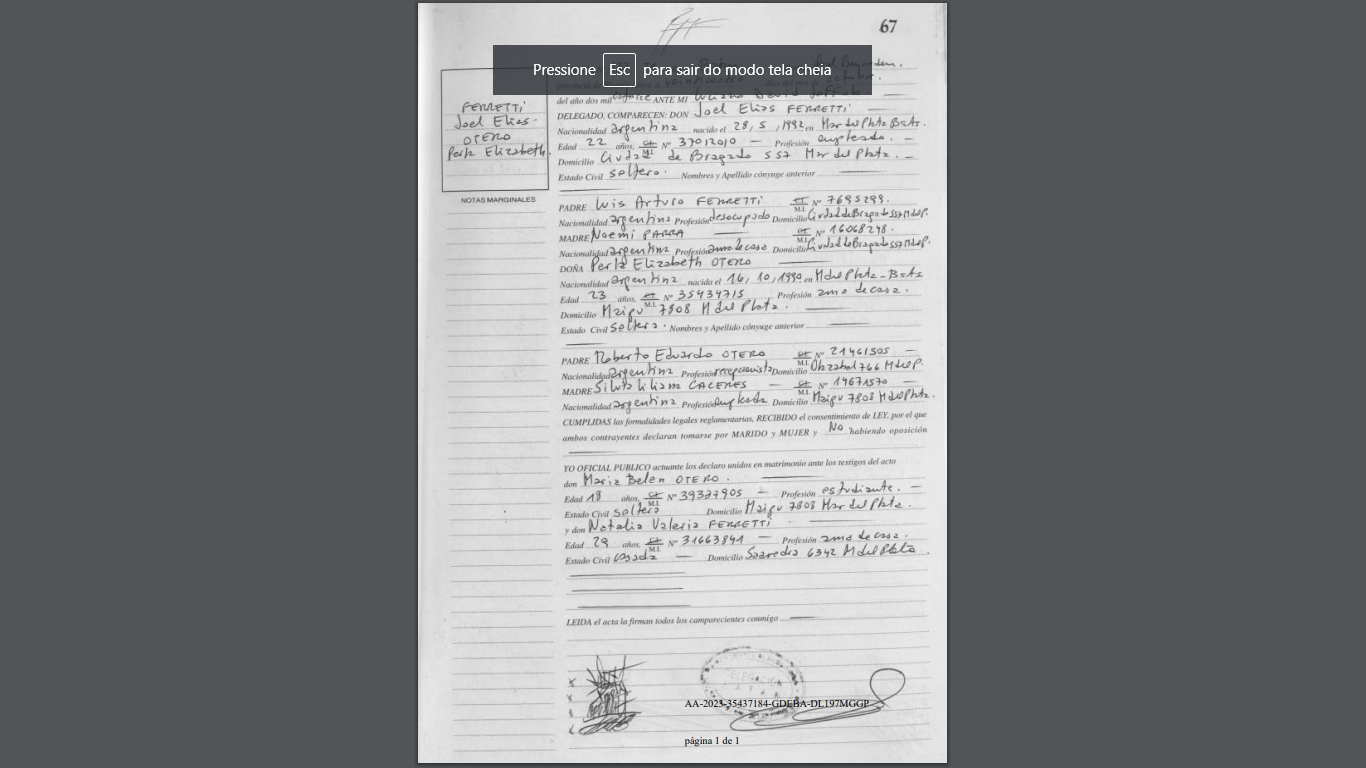 67
Pressione Esc para sair do modo tela cheia
del año dos mil catorce ANTE MI Luciano David
DELEGADO, COMPARECEN: DON Joel Elias FERRETTI
Nacionalidad argentina nacido el 28, 5, 1992 en Mar del Plata BsAs.
Edad 22 años, M.I. Nº 37012010 — Profesión empleado. —
Domicilio Ciudad de Bragado 557 Mar del Plata. —
Estado Civil soltero. Nombres y Apellido cónyuge anterior
FERRETTI
Joel Elias
OTERO
Perla Elizabeth.
NOTAS MARGINALES
PADRE Luis Arturo FERRETTI M.I. Nº 7695299.
Nacionalidad argentina Profesión desocupado Domicilio Ciudad de Bragado 557 MdelP.
MADRE Noemi PARRA M.I. Nº 16068248.
Nacionalidad argentina Profesión ama de casa Domicilio Ciudad de Bragado 557 MdelP.
DOÑA Perla Elizabeth OTERO
Nacionalidad argentina nacida el 16, 10, 1990 en M del Plata - BsAs
Edad 23 años, M.I. Nº 35434715 Profesión ama de casa.
Domicilio Maipu 7808 M del Plata.
Estado Civil soltera. Nombres y Apellido cónyuge anterior
PADRE Roberto Eduardo OTERO M.I. Nº 21461505 —
Nacionalidad argentina Profesión recepcionista Domicilio Olazabal 766 MdelP.
MADRE Silvia Liliana CACERES — M.I. Nº 14671570 —
Nacionalidad argentina Profesión empleada Domicilio Maipu 7808 M del Plata.
CUMPLIDAS las formalidades legales reglamentarias, RECIBIDO el consentimiento de LEY, por el que
ambos contrayentes declaran tomarse por MARIDO y MUJER y No habiendo oposición
YO OFICIAL PUBLICO actuante los declaro unidos en matrimonio ante los testigos del acto
don Maria Belen OTERO.
Edad 18 años, M.I. Nº 39327905 — Profesión estudiante. —
Estado Civil soltera Domicilio Maipu 7808 Mar del Plata.
y don Natalia Valeria FERRETTI
Edad 29 años, M.I. Nº 31663841 — Profesión ama de casa.
Estado Civil casada — Domicilio Saavedra 6342 M del Plata.
LEIDA el acta la firman todos los camparecientes conmigo
DELEGACION
AA-2023-35437184-GDEBA-DL197MGGP
página 1 de 1